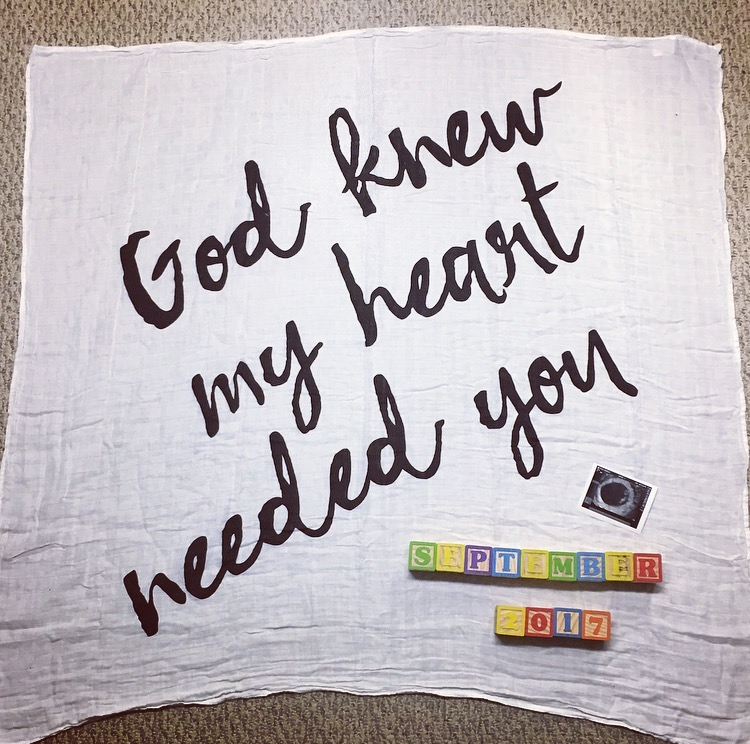 God knew
my heart
needed you
SEPTEMBER
2017